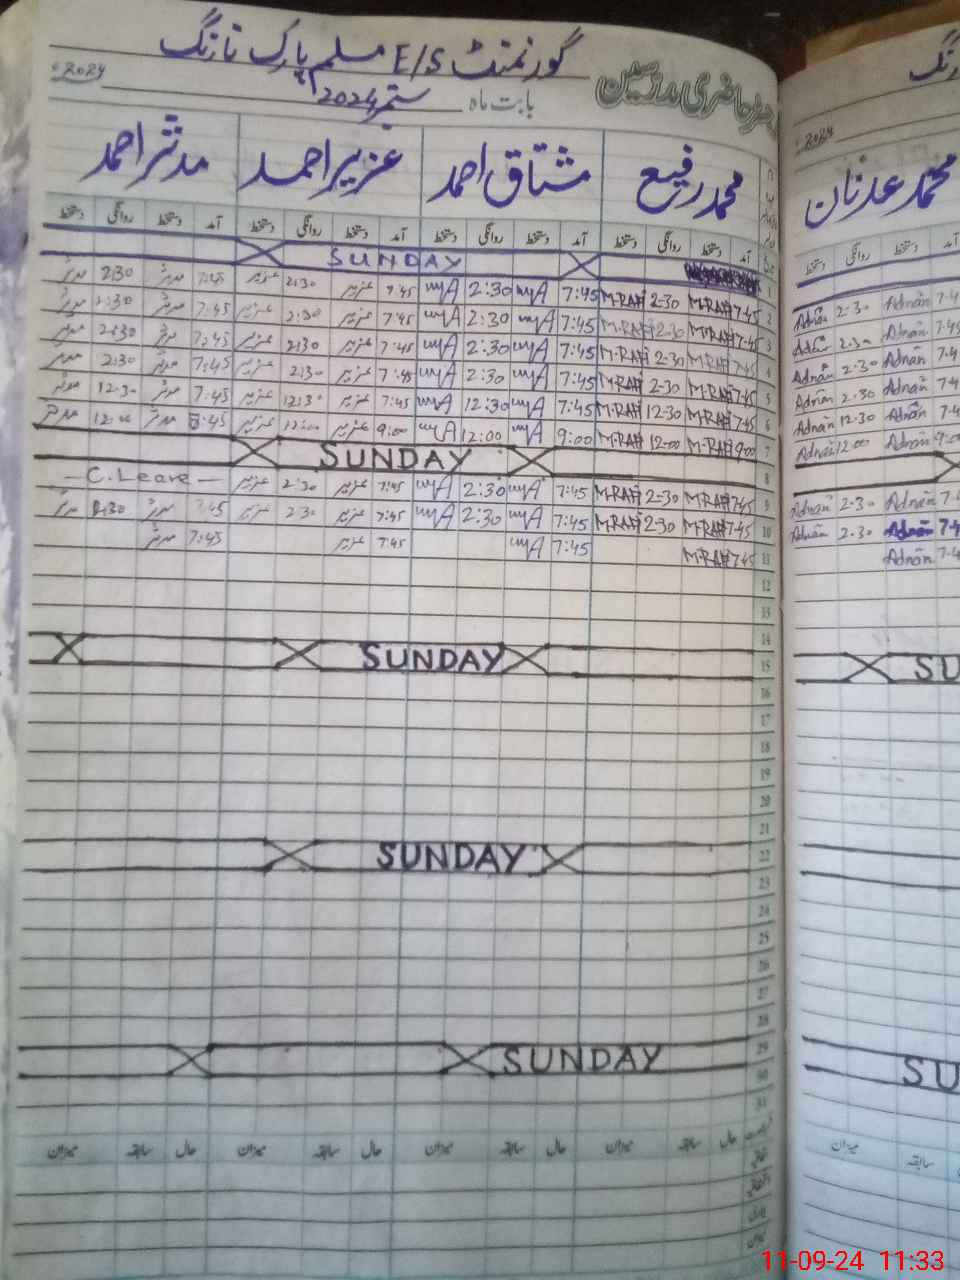 گورنمنٹ E/S مسلم پارک نارنگ
حاضری مدرسین
بابت ماہ ستمبر 2024 2024ء
محمد رفیع مشتاق احمد عزیر احمد مدثر احمد
آمد دستخط روانگی دستخط آمد دستخط روانگی دستخط آمد دستخط روانگی دستخط آمد دستخط روانگی دستخط
1 SUNDAY
2 7:45 M-RAFI 2-30 M-RAFI 7:45 2:30 7:45 عزیر 2:30 عزیر 7:45 مدثر 2:30 مدثر
3 7:45 M-RAFI 2-30 M-RAFI 7:45 2:30 7:45 عزیر 2:30 عزیر 7:45 مدثر 2:30 مدثر
4 7:45 M-RAFI 2-30 M-RAFI 7:45 2:30 7:45 عزیر 2:30 عزیر 7:45 مدثر 2:30 مدثر
5 7:45 M-RAFI 2-30 M-RAFI 7:45 2:30 7:45 عزیر 2:30 عزیر 7:45 مدثر 2:30 مدثر
6 7:45 M-RAFI 12-30 M-RAFI 7:45 12:30 7:45 عزیر 12:30 عزیر 7:45 مدثر 12:30 مدثر
7 9:00 M-RAFI 12:00 M-RAFI 9:00 12:00 9:00 عزیر 12:00 عزیر مدثر 12:00 مدثر
8 SUNDAY
9 7:45 M-RAFI 2-30 M-RAFI 7:45 2:30 7:45 عزیر 2:30 عزیر - C. Leave -
10 7:45 M-RAFI 2-30 M-RAFI 7:45 2:30 7:45 عزیر 2:30 عزیر 7:45 مدثر 2:30 مدثر
11 7:45 M-RAFI 7:45 7:45 عزیر 7:45 مدثر
12
13
14
15 SUNDAY
16
17
18
19
20
21
22 SUNDAY
23
24
25
26
27
28
29 SUNDAY
30
31
حال سابقہ میزان حال سابقہ میزان حال سابقہ میزان حال سابقہ میزان
محمد عدنان
2024
آمد دستخط روانگی دستخط
Adnan 2-30 Adnan
Adnan 2-30 Adnan
Adnan 2-30 Adnan
Adnan 2-30 Adnan
Adnan 12-30 Adnan
Adnan 12:00 Adnan
Adnan 2-30 Adnan
Adnan 2-30 Adnan
Adnan
سابقہ میزان
11-09-24 11:33